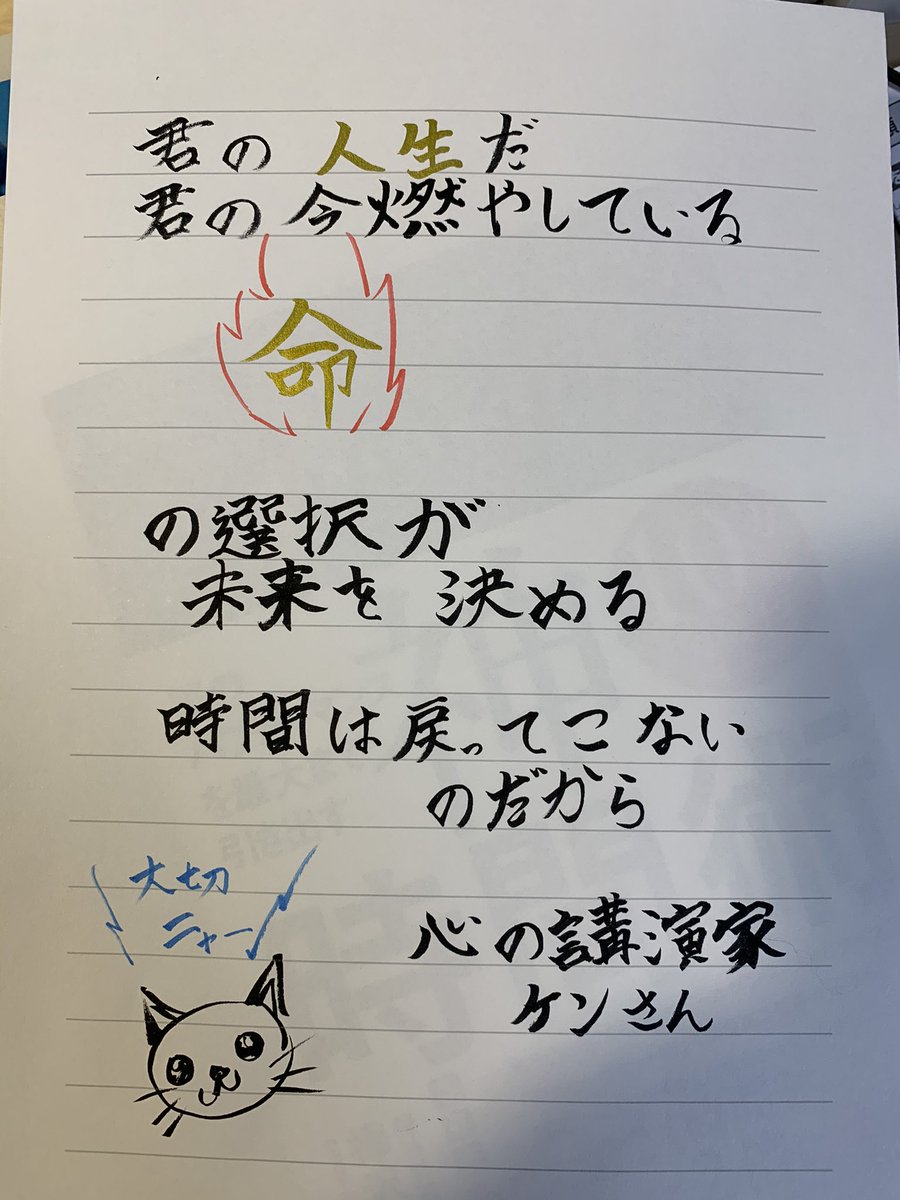 君の人生だ
君の今燃やしている
命
の選択が
未来を決める
時間は戻ってこない
のだから
大切
ニャー
心の講演家
ケンさん